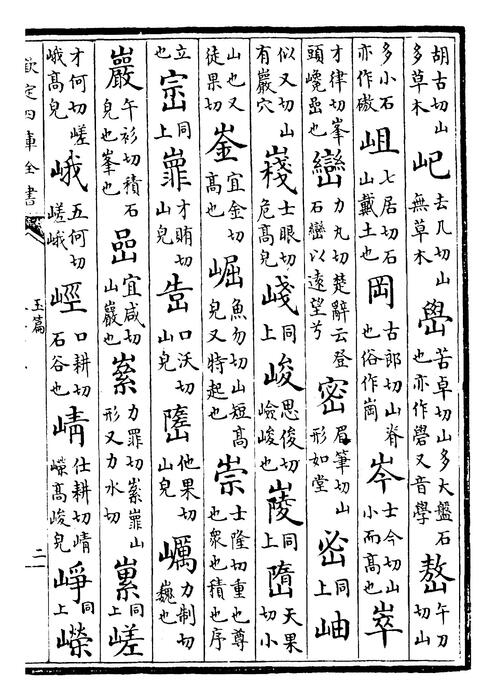 胡古切山多草木屺去几切山無草木嶨苦卓切山多大盤石也亦作礐又音學嶅午刀切山
多小石亦作磝岨七居切石山戴土也岡古郎切山脊也俗作崗岑士今切山小而高也崒
才律切峯頭巉嵒也巒力丸切楚辭云登石巒以遠望兮密眉筆切山形如堂峚同上岫
似又切山有巖穴嶘士眼切危高皃嵏同上峻思俊切嶮峻也㟭同上嶞天果切小
山也又徒果切崟宜金切高也崛魚勿切山短高皃又特起也崇士隆切重也尊也衆也積也序
立也崈同上㠑才賄切山皃峼口沃切山皃嶐他果切山皃巁力制切巍也
巖午衫切積石皃也峯也嵒宜咸切山巖也㠥力罪切㠥㠑山形又力水切㠧同上嵯
才何切嵯峨高皃峨五何切嵯峨峌口耕切石谷也崝仕耕切崝嶸高峻皃崢同上嶸
欽定四庫全書
玉篇
二